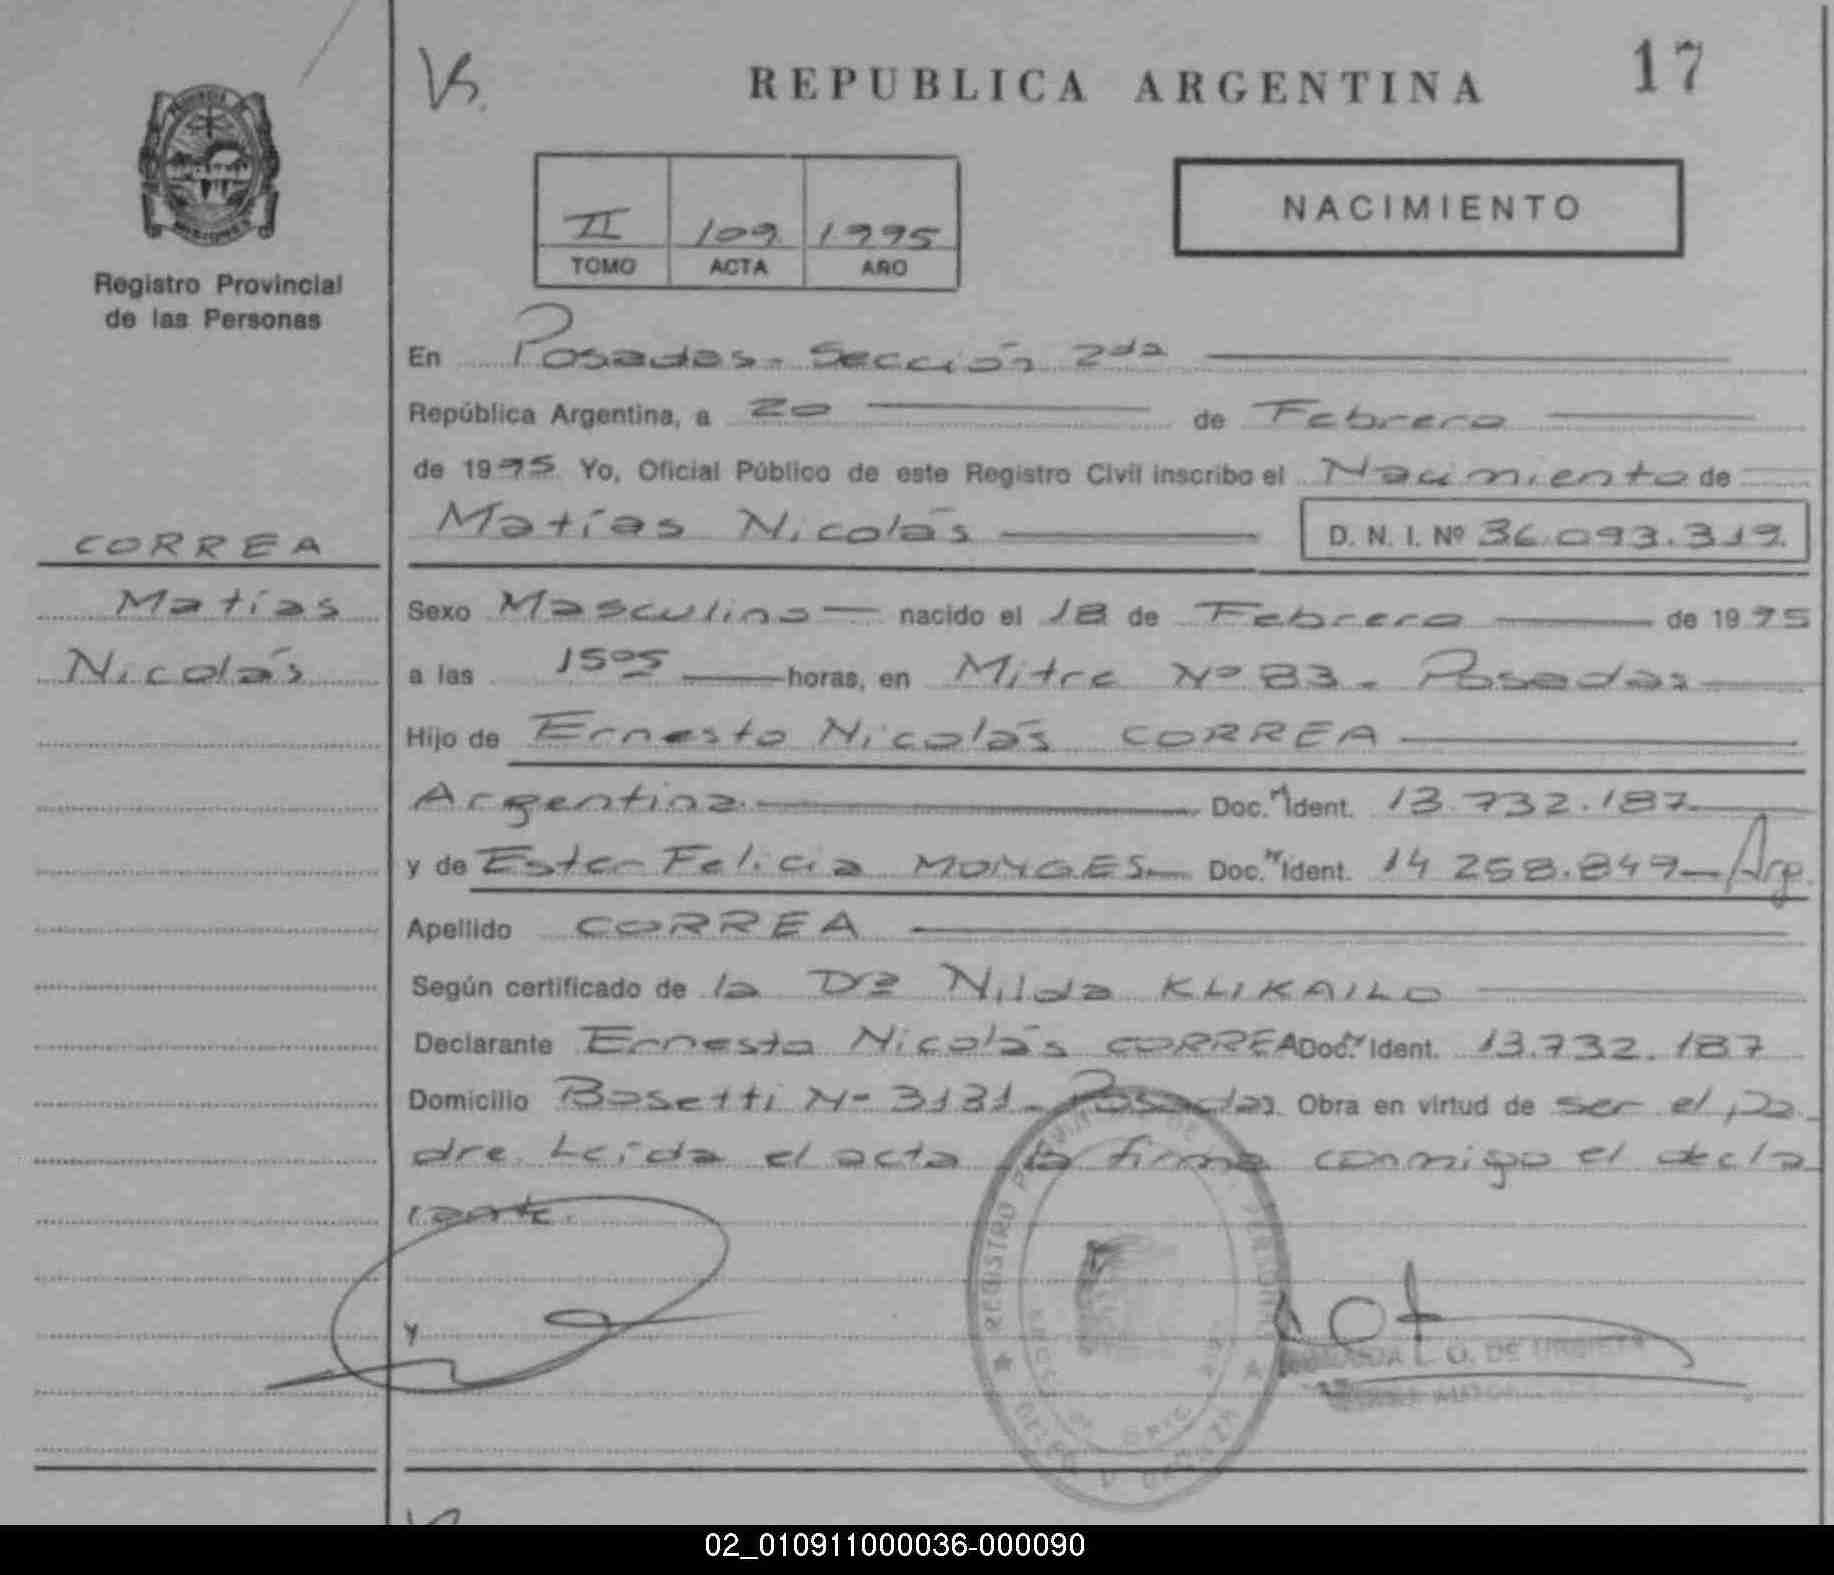 Vs.
REPUBLICA ARGENTINA
17
NACIMIENTO
II 109 1995
TOMO ACTA AÑO
Registro Provincial
de las Personas
En Posadas - Sección 2da
República Argentina, a 20 de Febrero
de 1995 Yo, Oficial Público de este Registro Civil inscribo el Nacimiento de
Matías Nicolás D. N. I. Nº 36.093.319.
CORREA
Matías
Nicolás
Sexo Masculino nacido el 18 de Febrero de 1995
a las 15:05 horas, en Mitre Nº 83 - Posadas
Hijo de Ernesto Nicolás CORREA
Argentina Doc. Ident. 13.732.187
y de Ester Felicia MONGES Doc. Ident. 14.258.849 Arg.
Apellido CORREA
Según certificado de la Dra Nilda KLIKAILO
Declarante Ernesto Nicolás CORREA Doc. Ident. 13.732.187
Domicilio Bosetti Nº 3131 - Posadas Obra en virtud de ser el pa
dre. Leída el acta la firma conmigo el decla
rante.
REGISTRO PERSONAS
L. O. DE
02_010911000036-000090